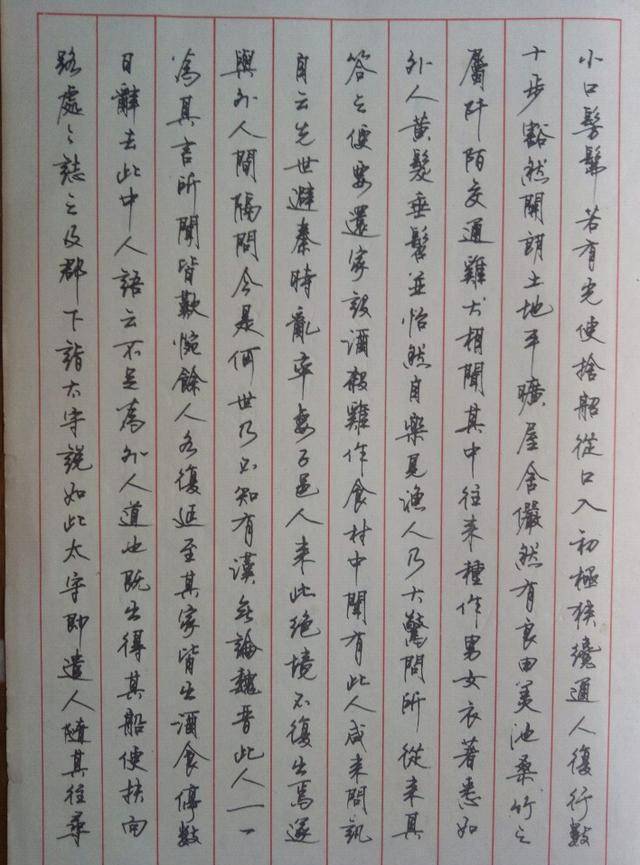 小口髣髴若有光便捨船從口入初極狹纔通人復行數
十步豁然開朗土地平曠屋舍儼然有良田美池桑竹之
屬阡陌交通雞犬相聞其中往来種作男女衣著悉如
外人黃髮垂髫並怡然自樂見漁人乃大驚問所從来具
答之便要還家設酒殺雞作食村中聞有此人咸来問訊
自云先世避秦時亂率妻子邑人来此絕境不復出焉遂
與外人間隔問今是何世乃不知有漢無論魏晉此人一一
為具言所聞皆歎惋餘人各復延至其家皆出酒食停數
日辭去此中人語云不足為外人道也既出得其船便扶向
路處〻誌之及郡下詣太守說如此太守即遣人隨其往尋